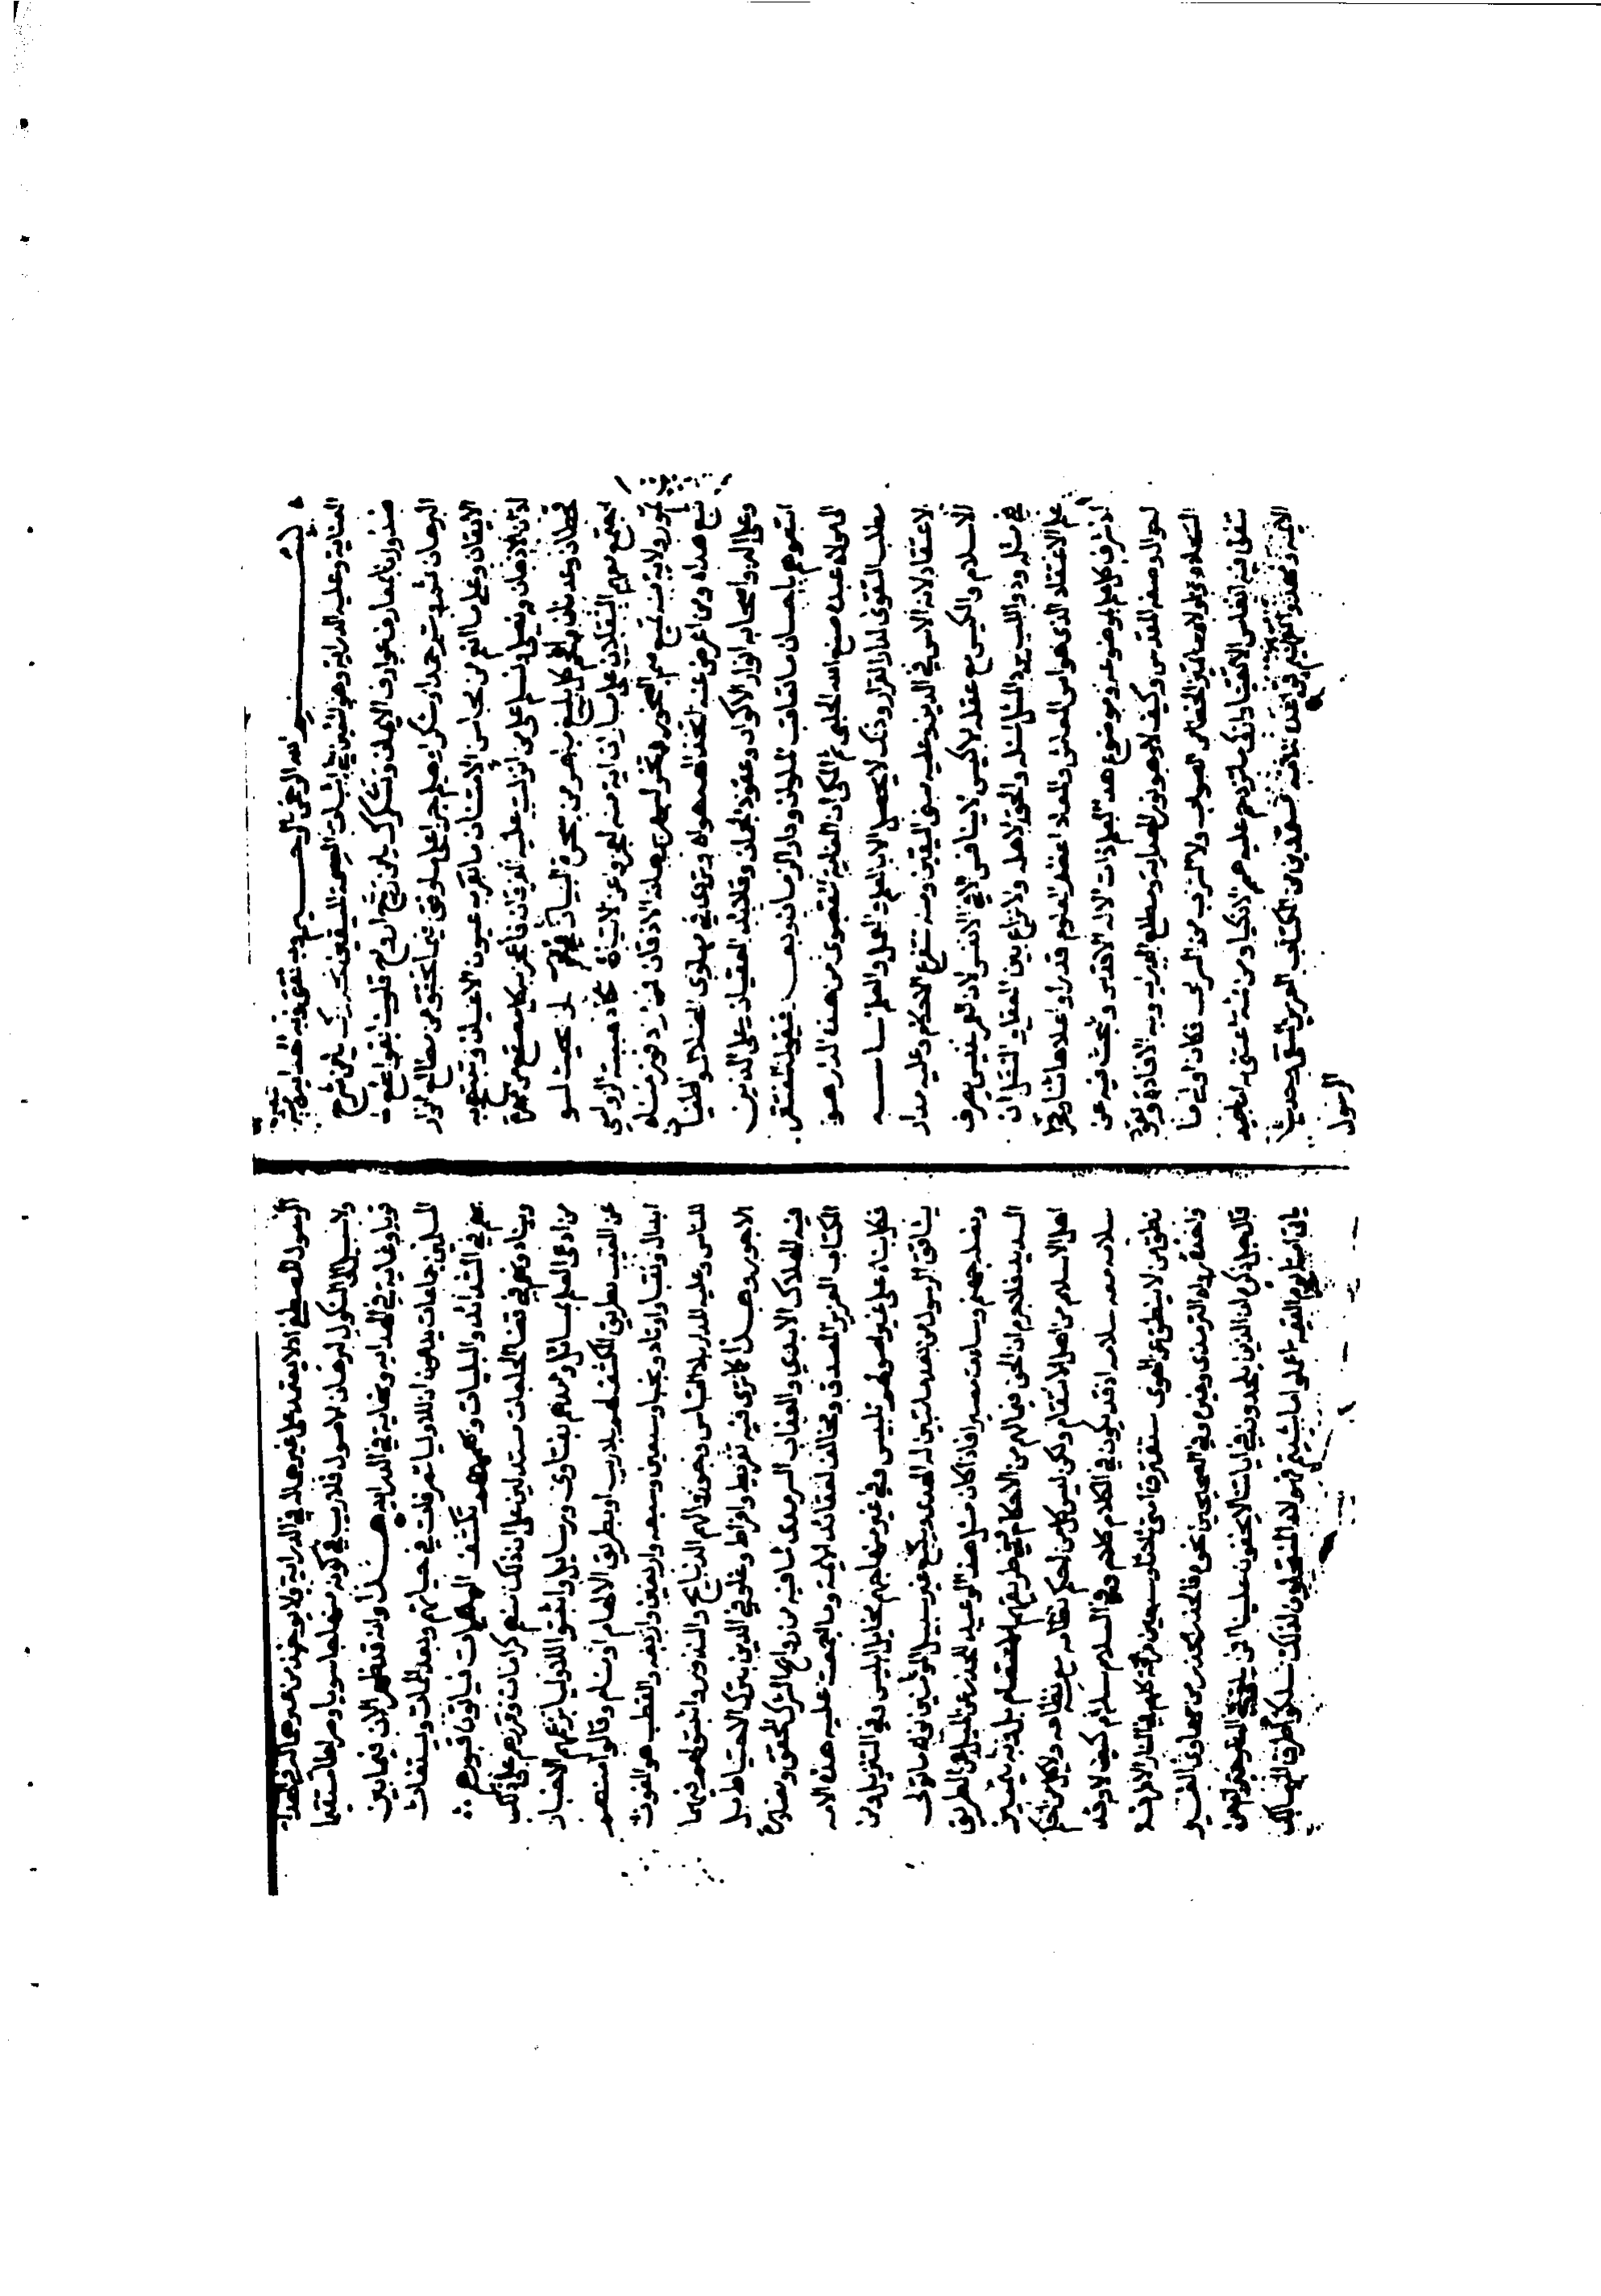 بسم الله الرحمن الرحيم وبه ثقتي
العناية وعليه الدراية وهو المثيب باثبات اليقين نحمدك يا من شرح
صدورنا بمعارف عوارف الايمان ونشكرك يا من روح قلوبنا
البرهان حمدا وشكرا من مطالع انوار
الايقان وعلى ما انعم من الامتنان ما تقر به عيون الاعيان وتبتهج به
الاذهان ونصلي ونسلم على من انزلت عليه الفرقان فاعجز به كل مصقع
قحطان وعدنان وافحم كل بليغ من سحرة البيان بحيث لو
اجتمع معهم الثقلان على ان
تبع هداه ومن اعرض عنه اتخذ الهه هواه وتردى في مهاوي الضلال
وعلى اله واصحابه انوار الاكوان وعقود الجمان وقلائد العقيان وعلى الذين
اتبعوهم باحسان ما تعاقب الملوان ودار الزمان وبعد فيقول المفتقر
الى مولاه عبده صنع الله الحلبي ثم المكي ان الغاية القصوى من هذه الدار هو
مطلب التقوى لدار القرار وذلك لا يحصل الا بالعلم والعمل والعلم اساسه
الاعتقاد لانه الاس في الدين وعليه مبنى اليقين ومنه تتفرع الاحكام وعليه مدار
الاسلام والكيس مع عقله لا يكيس الا ينافس في الانفس اذ النفيس يعرف
في مثله ود واللبيب يود المثل لمثله والحق لاهله ولا نزاع بين العقل والنقل ان
علم الاعتقاد الذي هو اس المعاش والمعاد اعظم العلوم قدرا واعلاها شانا وفخرا
اذ شرف كل علم بموضوعه وموضوع هذا العلم ذات الاله الاقدس وبحث فيه عن
احواله وصفه المقدس وكيف لا وهو نور الهداية ومطلع الدراية وبه الافادة
السعادة ولولاه ما تميز الخطا من الصواب ولا الشرب من السراب فكان اولى ما
تتفانى فيه انفاس الاتقيا وانفس ما تزدحم عليه همم الاذكيا ومن ثمة اعتنى به
الائمة مستمدين من الكتاب العزيز المتين وحديث
الرسول
الرسول المصطفى اذ لا يعتمد على غيرها في الدراية ولا يوخذ من غيرها
ولا سبيل الى النكول لبرهان الاصول فلا ريب في كونه منهاجا سويا وصراطا مستقيما
قويا وغاية في الهداية ونهاية في الدراية هذا وانه قد ظهر الان فيما بين
المسلمين جماعات يدعون ان للاوليا تصرفات في حياتهم وبعد الممات ويستغاث
بهم في الشدائد والبليات وبهممهم تكشف المهمات فياتون قبورهم
وينادونهم في قضا الحاجات مستدلين على ان ذلك منهم كرامات وقررهم على ذلك
من ادعى العلم بمسائل وامدهم بفتاوى ورسايل واثبتوا للاوليا بزعمهم الاخبار
عن الغيب بطريق الكشف لهم بلا ريب او بطريق الالهام او منام وقالوا منهم
ابدال ونقبا واوتاد ونجبا وسبعين وسبعة واربعين واربعة والقطب هو الغوث
للناس وعليه المدار بلا التباس وجوزوا لهم الذبايح والنذور واثبتوا لهم فيهما
الاجور وهذا كما ترى فيه تفريط وافراط وغلو في الدين بترك الاحتياط بل
فيه الهلاك الابدي والعذاب السرمدي لما فيه من روايح الشرك المحقق ومصادرة
الكتاب العزيز المصدق ومخالف لعقائد الايمة وما اجتمعت عليه هذه الامه
فكل بناء على غير اصولهم تلبيس وفي غير منهاجهم مخايل ابليس وفي التنزيل ومن
يشاقق الرسول من بعد ما تبين له الهدى ويتبع غير سبيل المومنين نوله ما تولى
ونصله جهنم وساءت مصيرا فاذا كان مثل هذا الوعيد للحذر عن الميل عن الطريق
السديد فلا جرم ان الحق فيما لهم من الاحكام في طريقهم الاعتصام بل وبه يتميز
اهل الاسلام من اهل الانتقام ولكن ليس كل من احكم نظامه مع نظامه ولا كل من احكم
سلامه معه سلامه اذ قد يكون في الكلام كلام وفي السلام سلام كيف لا وقد
نطق من لا ينطق عن الهوى ستفترق امتي ثلاثا وسبعين فرقة كلهم في النار الا فرقة
واحدة رواه الترمذي وغيره وفي الصحيحين نحوه فالحذر الحذر من مهاوي الغير
قال جل ذكره ان الذين يلحدون في اياتنا لا يخفون علينا افمن يلقى في النار خير ام من
ياتي امنا يوم القيمة اعملوا ما شئتم فهولاء المنتحلون لذلك سلكوا طريق المهالك